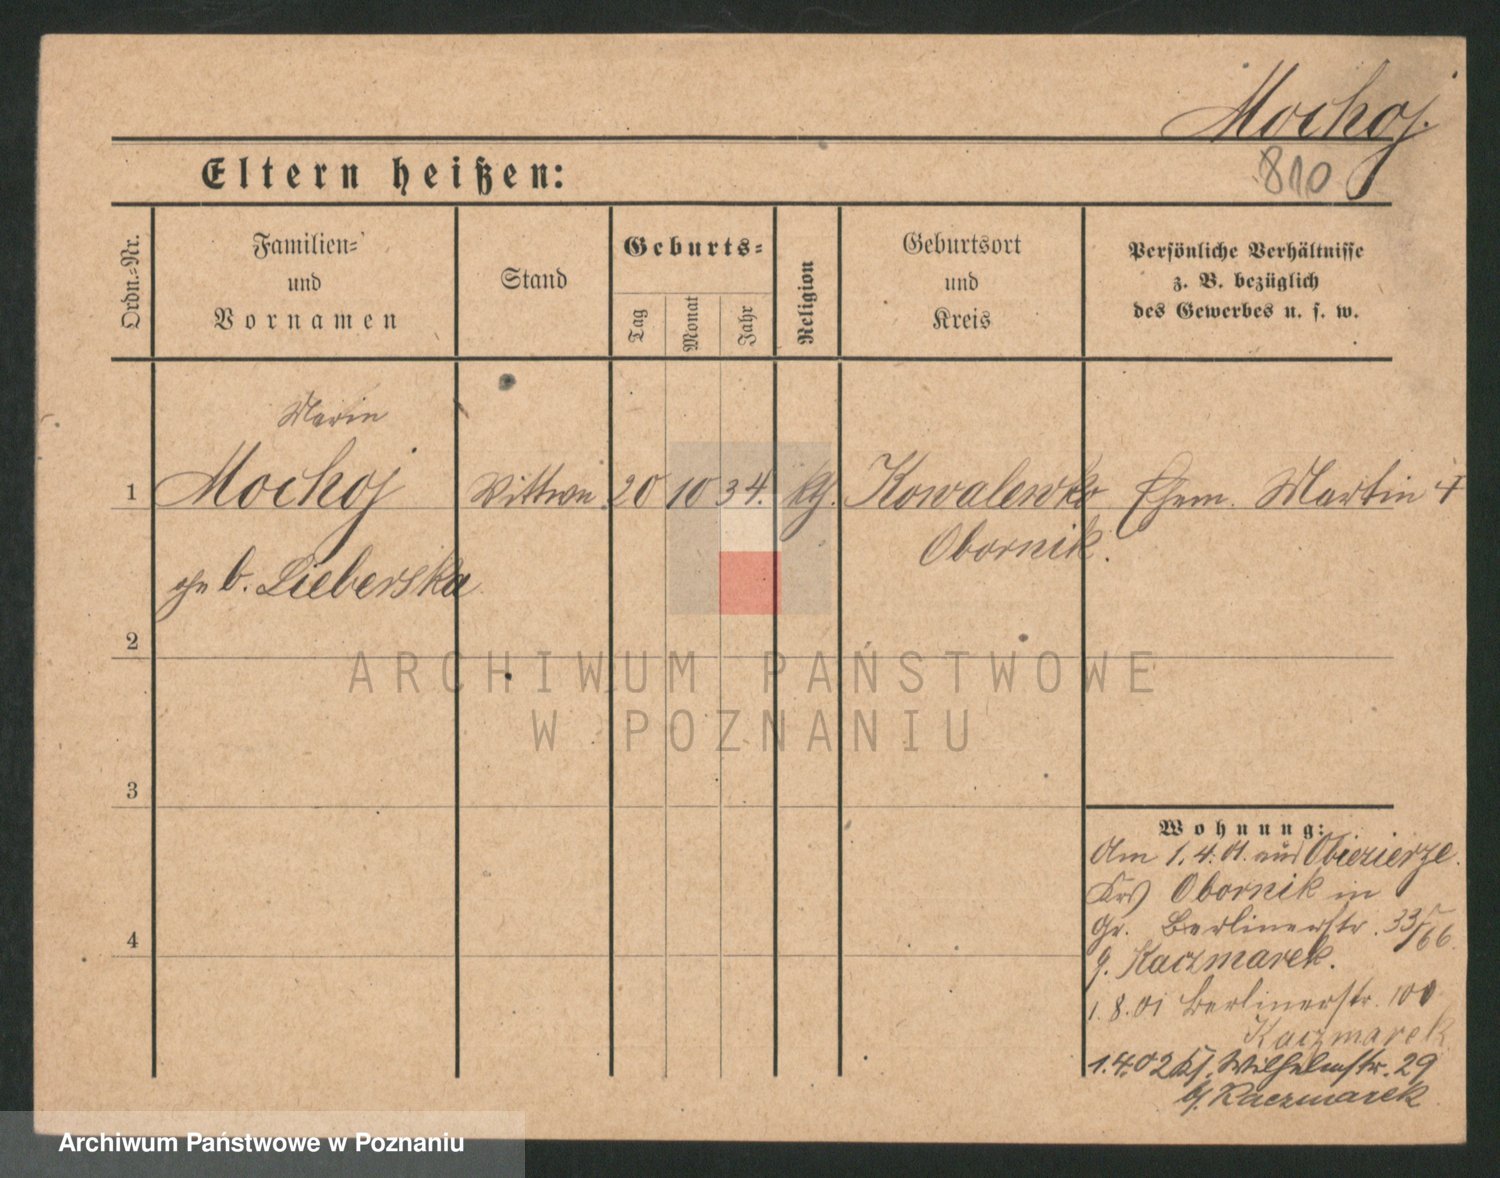 Mochoj.
810
Eltern heißen:
Ordn.-Nr.
Familien- und Vornamen
Stand
Geburts-
Tag
Monat
Jahr
Religion
Geburtsort und Kreis
Persönliche Verhältnisse z. B. bezüglich des Gewerbes u. s. w.
Marie
1 Mochoj Wittwe 20 10 34. kth. Kowalewko Ehem. Martin †
Obornik.
geb. Lieberska
2
3
4
Wohnung:
Am 1.4.01. aus Obiezierze.
Krs Obornik in
Gr. Berlinerstr. 33/66
b. Kaczmarek.
1.8.01 Berlinerstr. 100
Kaczmarek
1.4.02 Wilhelmstr. 29
b. Kaczmarek
ARCHIWUM PAŃSTWOWE
W POZNANIU
Archiwum Państwowe w Poznaniu